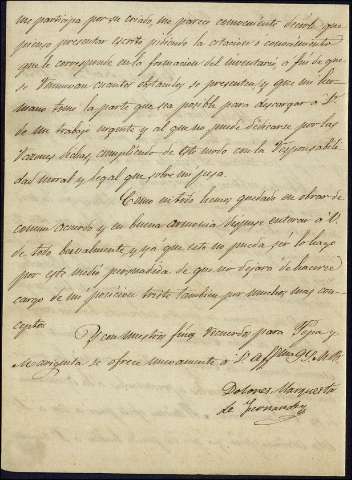 me participa por su criado, me parece conveniente decirle que
pienso presentar escrito pidiendo la citación o emplazamiento
que le corresponde en la formación del inventario a fin de que
se remuevan cuantos obstáculos se presenten y que mi her-
mano tome la parte que sea posible para descargar a V.
de un trabajo urgente y al que no puede dedicarse por las
razones dichas, cumpliendo de este modo con la responsabili-
dad moral y legal que sobre mi pesa.
Como en todo hemos quedado en obrar de
comun acuerdo y en buena armonia deseo enterar a V.
de todo verbalmente y ya que esto no pueda ser lo hago
por este medio persuadida de que no dejará de hacerse
cargo de mi posicion triste tambien por muchos mas con-
ceptos.
Y con nuestros finos recuerdos para Pepa y
Mariquita se ofrece nuevamente a V. affma
Dolores Marquesta
de Fernandez